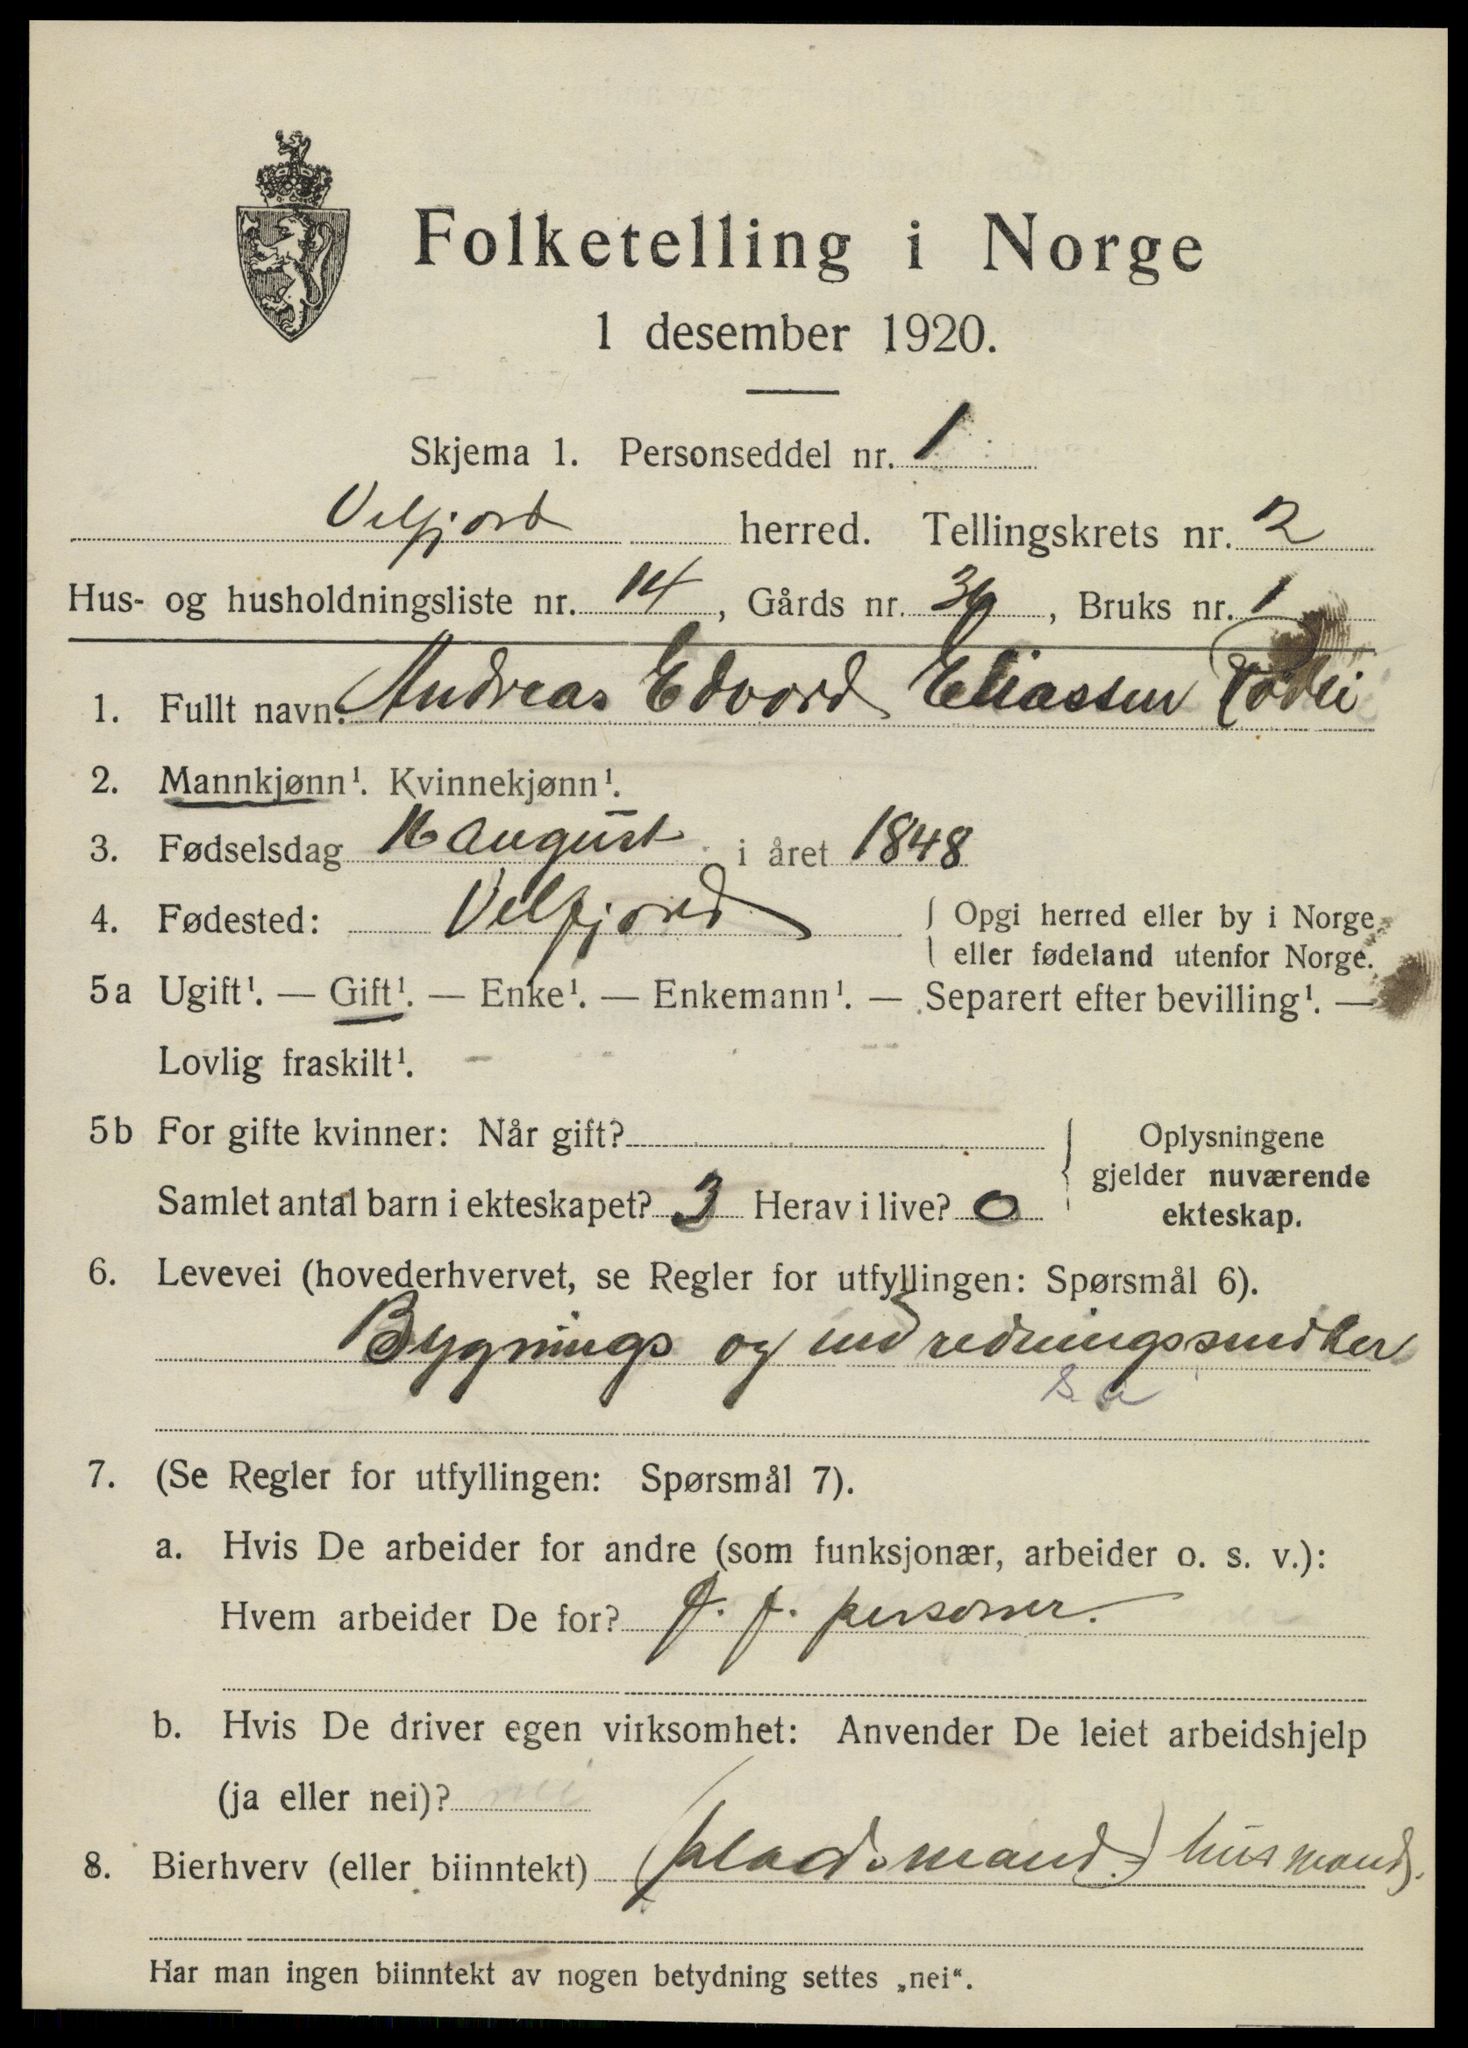 Folketelling i Norge
1 desember 1920.
Skjema 1. Personseddel nr. 1
Velfjord herred. Tellingskrets nr. 2
Hus- og husholdningsliste nr. 14, Gårds nr. 36, Bruks nr. 1
1. Fullt navn: Andreas Edvord Eliassen
2. Mannkjønn¹. Kvinnekjønn¹.
3. Fødselsdag 16 august i året 1848
4. Fødested: Velfjord { Opgi herred eller by i Norge
eller fødeland utenfor Norge.
5a Ugift¹. — Gift¹. — Enke¹. — Enkemann¹. — Separert efter bevilling¹. —
Lovlig fraskilt¹.
5b For gifte kvinner: Når gift?
Samlet antal barn i ekteskapet? 3 Herav i live? 0
Oplysningene
gjelder nuværende
ekteskap.
6. Levevei (hovederhvervet, se Regler for utfyllingen: Spørsmål 6).
Bygnings og indredningssnedker
7. (Se Regler for utfyllingen: Spørsmål 7).
a. Hvis De arbeider for andre (som funksjonær, arbeider o. s. v.):
Hvem arbeider De for? f. f. personer.
b. Hvis De driver egen virksomhet: Anvender De leiet arbeidshjelp
(ja eller nei)? nei
8. Bierhverv (eller biinntekt) (pladsmand.) husmand.
Har man ingen biinntekt av nogen betydning settes „nei“.